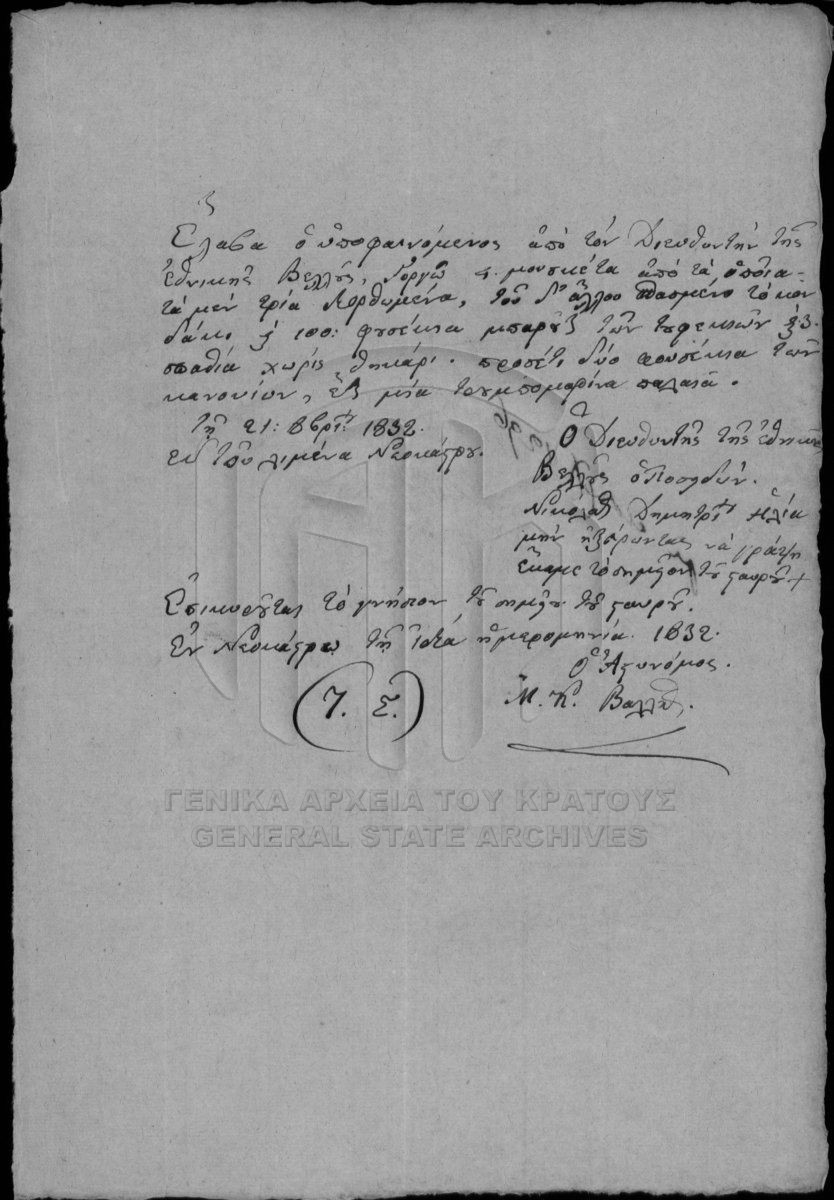 Ἔλαβα ὁ ὑποφαινόμενος ἀπὸ τὸν Διευθυντὴν τῆς
ἐθνικῆς Βελλοῦς, Γοργῶ 4. μουσκέτα ἀπὸ τὰ ὁποῖα
τὰ μὲν τρία διορθωμένα, τοῦ δ' ἄλλου σπασμένο τὸ κον
δάκι, ἓ 100: φυσέκια μπαροὺτ τῶν τυφεκιῶν ἓ 3.
σπαθιὰ χωρὶς θηκάρι. προσέτι δύο φουσέκια τῶν
κανονίων, ἓξ μία τουμπομαρίνα παλαιά.
τῇ 21: 8βρίου: 1832.
ἐκ τοῦ λιμένα Νεοκάστρου.
Ὁ Διευθυντὴς τῆς ἐθνικῆς
Βελλοῦς ὁ Ποσειδῶν.
Νικόλαος Δημητρίου Ἠλία
μὴν ἠξεύροντας νὰ γράψῃ
ἔκαμε τὸ σημεῖον τοῦ σταυροῦ +
Ἐπικυροῦται τὸ γνήσιον τοῦ σημείου τοῦ σταυροῦ.
Ἐν Νεοκάστρῳ τῇ ἰδίᾳ ἡμερομηνίᾳ. 1832.
Ὁ Ἀστυνόμος.
(Τ. Σ.)
Μ. Κ. Βαλλῆς.
ΓΕΝΙΚΑ ΑΡΧΕΙΑ ΤΟΥ ΚΡΑΤΟΥΣ
GENERAL STATE ARCHIVES